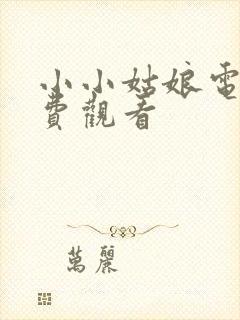 小小姑娘電
費觀看
萬麗